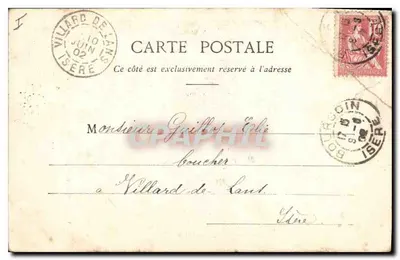 VILLARD-DE-LANS
10
JUIN
02
ISÈRE
CARTE POSTALE
Ce côté est exclusivement réservé à l'adresse
BOURGOIN
ISÈRE
Monsieur Guillot Elie
boucher
à Villard de Lant
Isère